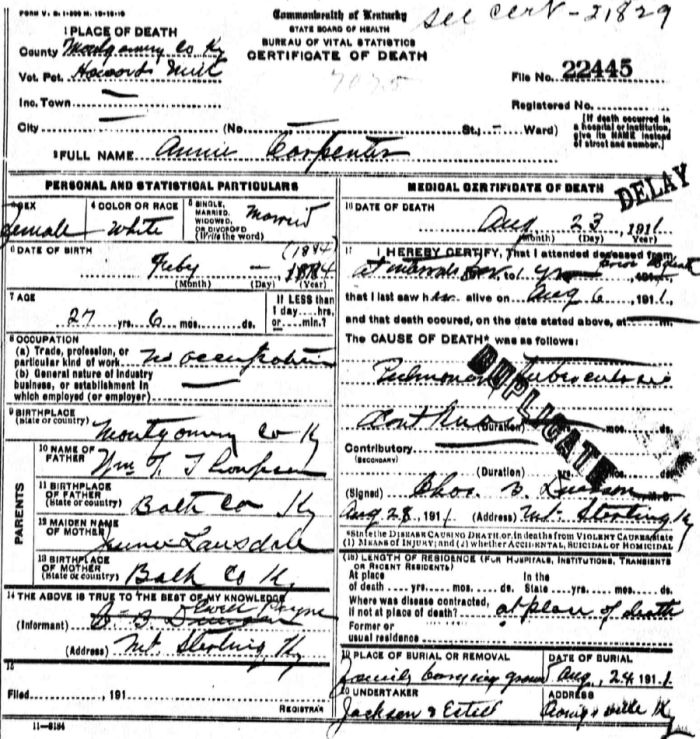 FORM V. S. 1-500 M. 10-15-10
Commonwealth of Kentucky
see cert - 21829
STATE BOARD OF HEALTH
BUREAU OF VITAL STATISTICS
CERTIFICATE OF DEATH
1 PLACE OF DEATH
County Montgomery Co Ky
Vot. Pct. Howards
File No. 22445
Inc. Town
Registered No.
City (No. St.; Ward)
[If death occurred in
a hospital or institution,
give its NAME instead
of street and number.]
2 FULL NAME Annie Carpenter
PERSONAL AND STATISTICAL PARTICULARS
3 SEX
Female
4 COLOR OR RACE
White
5 SINGLE,
MARRIED,
WIDOWED,
OR DIVORCED
(Write the word)
Married
6 DATE OF BIRTH
Feby - 1884 (1884)
(Month) (Day) (Year)
7 AGE
27 yrs. 6 mos. ds.
If LESS than
1 day....hrs,
or.....min.?
8 OCCUPATION
(a) Trade, profession, or
particular kind of work no occupation
(b) General nature of industry
business, or establishment in
which employed (or employer)
9 BIRTHPLACE
(State or country)
Montgomery Co Ky
PARENTS
10 NAME OF
FATHER
Wm T. Thompson
11 BIRTHPLACE
OF FATHER
(State or country)
Bath Co Ky
12 MAIDEN NAME
OF MOTHER
Lansdale
13 BIRTHPLACE
OF MOTHER
(State or country)
Bath Co Ky
14 THE ABOVE IS TRUE TO THE BEST OF MY KNOWLEDGE
Payne
(Informant)
(Address) Mt Sterling, Ky
15
Filed, 191
REGISTRAR
11-9184
MEDICAL CERTIFICATE OF DEATH
DELAY
16 DATE OF DEATH
Aug 23 1911
(Month) (Day) (Year)
17 I HEREBY CERTIFY, That I attended deceased from
at intervals to
that I last saw h alive on Aug 6, 1911,
and that death occured, on the date stated above, at m.
The CAUSE OF DEATH* was as follows:
Pulmonary Tuberculosis
DUPLICATE
(Duration) yrs. mos. ds.
Contributory
(SECONDARY)
(Duration) yrs. mos. ds.
(Signed) Chas. M. D.
Aug 28, 1911 (Address) Mt. Sterling Ky
*State the DISEASE CAUSING DEATH, or, in deaths from VIOLENT CAUSES, state
(1) MEANS OF INJURY; and (2) whether ACCIDENTAL, SUICIDAL OR HOMICIDAL
(18) LENGTH OF RESIDENCE (FOR HOSPITALS, INSTITUTIONS, TRANSIENTS
OR RECENT RESIDENTS)
At place
of death yrs. mos. ds.
In the
State yrs. mos. ds.
Where was disease contracted,
If not at place of death? at place of death
Former or
usual residence
19 PLACE OF BURIAL OR REMOVAL
Family burying ground
DATE OF BURIAL
Aug, 24 1911
20 UNDERTAKER
Jackson & Estill
ADDRESS
Ky